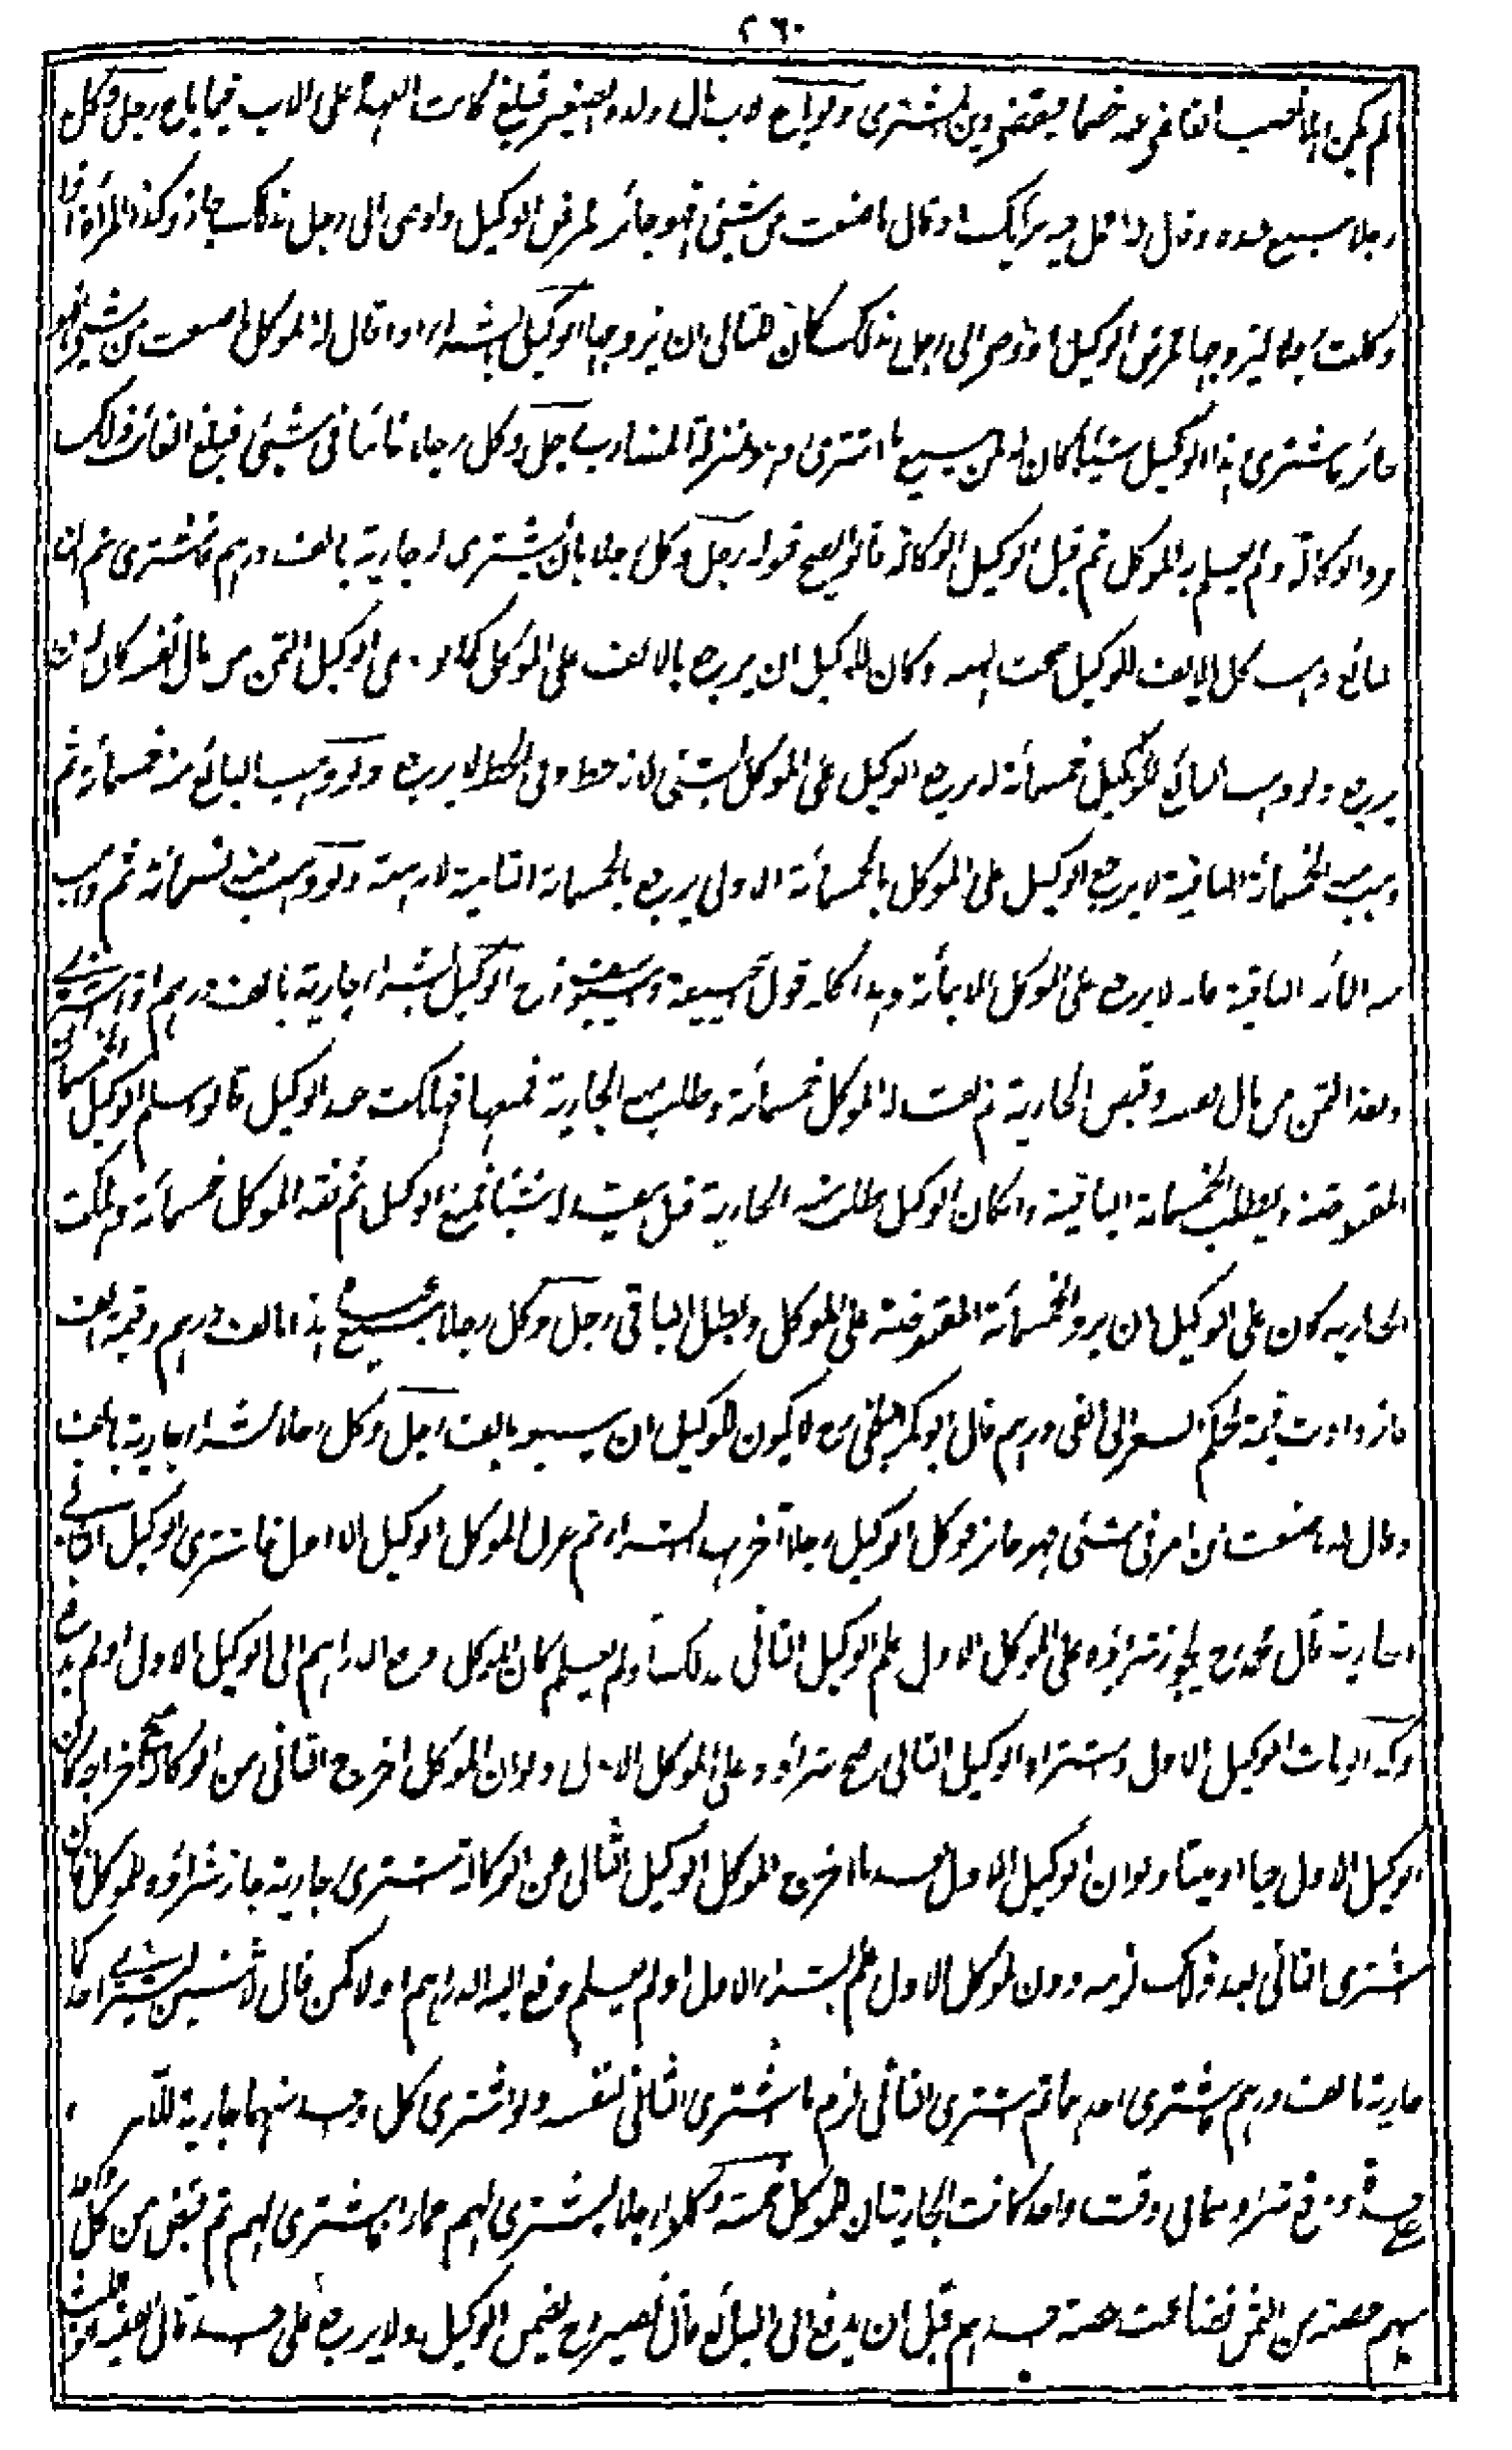 ٢٦٠
لم يكن لها نصب القاضي عنه خصما فيقضي دين المشتري ولو باع الاب مال ولده الصغير فبلغ كانت العهدة على الاب فيما باع رجل وكل
رجلا ببيع عبده وقال له اعمل فيه برأيك او قال ما صنعت من شيئ فهو جائز فمرض الوكيل واوصى الى رجل بذلك جاز وكذا المرأة اذا
وكلت رجلا ليزوجها فمرض الوكيل واوصى الى رجل بذلك كان للثاني ان يزوجها الوكيل بالشراء اذا قال له الموكل ما صنعت من شيئ فهو
جائز فاشترى هذا الوكيل شيئا كان له ان يبيع ما اشترى وهو بمنزلة المضارب رجل وكل رجلا غائبا في شيئ فبلغ الغائب ذلك
ورد الوكالة ولم يعلم به الموكل ثم قبل الوكيل الوكالة قالوا يصح قبوله رجل وكل رجلا بان يشتري له جارية بالف درهم فاشترى ثم ان
البائع وهب كل الالف للوكيل صحت الهبة وكان للوكيل ان يرجع بالالف على الموكل كما لو نقد الوكيل الثمن من مال نفسه كان له ان
يرجع ولو وهب البائع للوكيل خمسمائة لا يرجع الوكيل على الموكل بشيئ لانه حط وفي الحط لا يرجع ولو وهب البائع منه خمسمائة ثم
وهب منه الخمسمائة الباقية لا يرجع الوكيل على الموكل بالخمسمائة الاولى يرجع بالخمسمائة الثانية لانه هبة ولو وهب منه تسعمائة ثم وهب
منه المائة الباقية فانه لا يرجع على الموكل الا بمائة وهذا كله قول ابي حنيفة وابي يوسف رح الوكيل بشراء جارية بالف درهم اذا اشترى
ونقد الثمن من مال نفسه وقبض الجارية ثم نقد له الموكل خمسمائة وطلب منه الجارية فمنعها فهلكت عند الوكيل قالوا يسلم للوكيل الخمسمائة
المقبوضة ويبطل الخمسمائة الباقية وان كان الوكيل طلب منه الجارية قبل ان ينقد له شيئا فمنع الوكيل ثم نقد الموكل خمسمائة وهلكت
الجارية كان على الوكيل ان يرد الخمسمائة المقبوضة على الموكل ويبطل الباقي رجل وكل رجلا ببيع عبده هذا بالف درهم وقيمته الف
فازدادت قيمته بحكم السعر الى الفي درهم قال ابو بكر البلخي رح لا يكون للوكيل ان يبيعه بالف رجل وكل رجلا بشراء جارية بالف
وقال له ما صنعت من امر في شيئ فهو جائز فوكل الوكيل رجلا آخر بهذا الشراء ثم عزل الموكل الوكيل الاول فاشترى الوكيل الثاني
الجارية قال محمد رح يجوز شراؤه على الموكل الاول علم الوكيل الثاني بذلك او لم يعلم كان الموكل دفع الدراهم الى الوكيل الاول او لم يدفع
وكذا لو مات الوكيل الاول واشترى الوكيل الثاني صح شراؤه على الموكل الاول ولو ان الموكل اخرج الثاني من الوكالة صح اخراجه كان
الوكيل الاول حيا او ميتا ولو ان الوكيل الاول بعد ما اخرج الموكل الوكيل الثاني من الوكالة اشترى جارية جاز شراؤه للموكل فان
اشترى الثاني بعد ذلك لزمه دون الموكل الاول علم بشراء الاول او لم يعلم دفع اليه الدراهم او لا كمن قال لاثنين ليشتر احدكما
جارية بالف درهم فاشترى احدهما ثم اشترى الثاني لزم ما اشترى الثاني لنفسه ولو اشترى كل واحد منهما جارية للآمر
على حدة ووقع شراؤهما في وقت واحد كانت الجاريتان للموكل خمسة وكلوا رجلا ليشتري لهم حمارا فاشترى لهم ثم قبض من كل واحد
منهم حصته من الثمن فضاعت حصة احدهم قبل ان يدفع الى البائع قال نصير رح يضمن الوكيل ولا يرجع على احد قال الفقيه